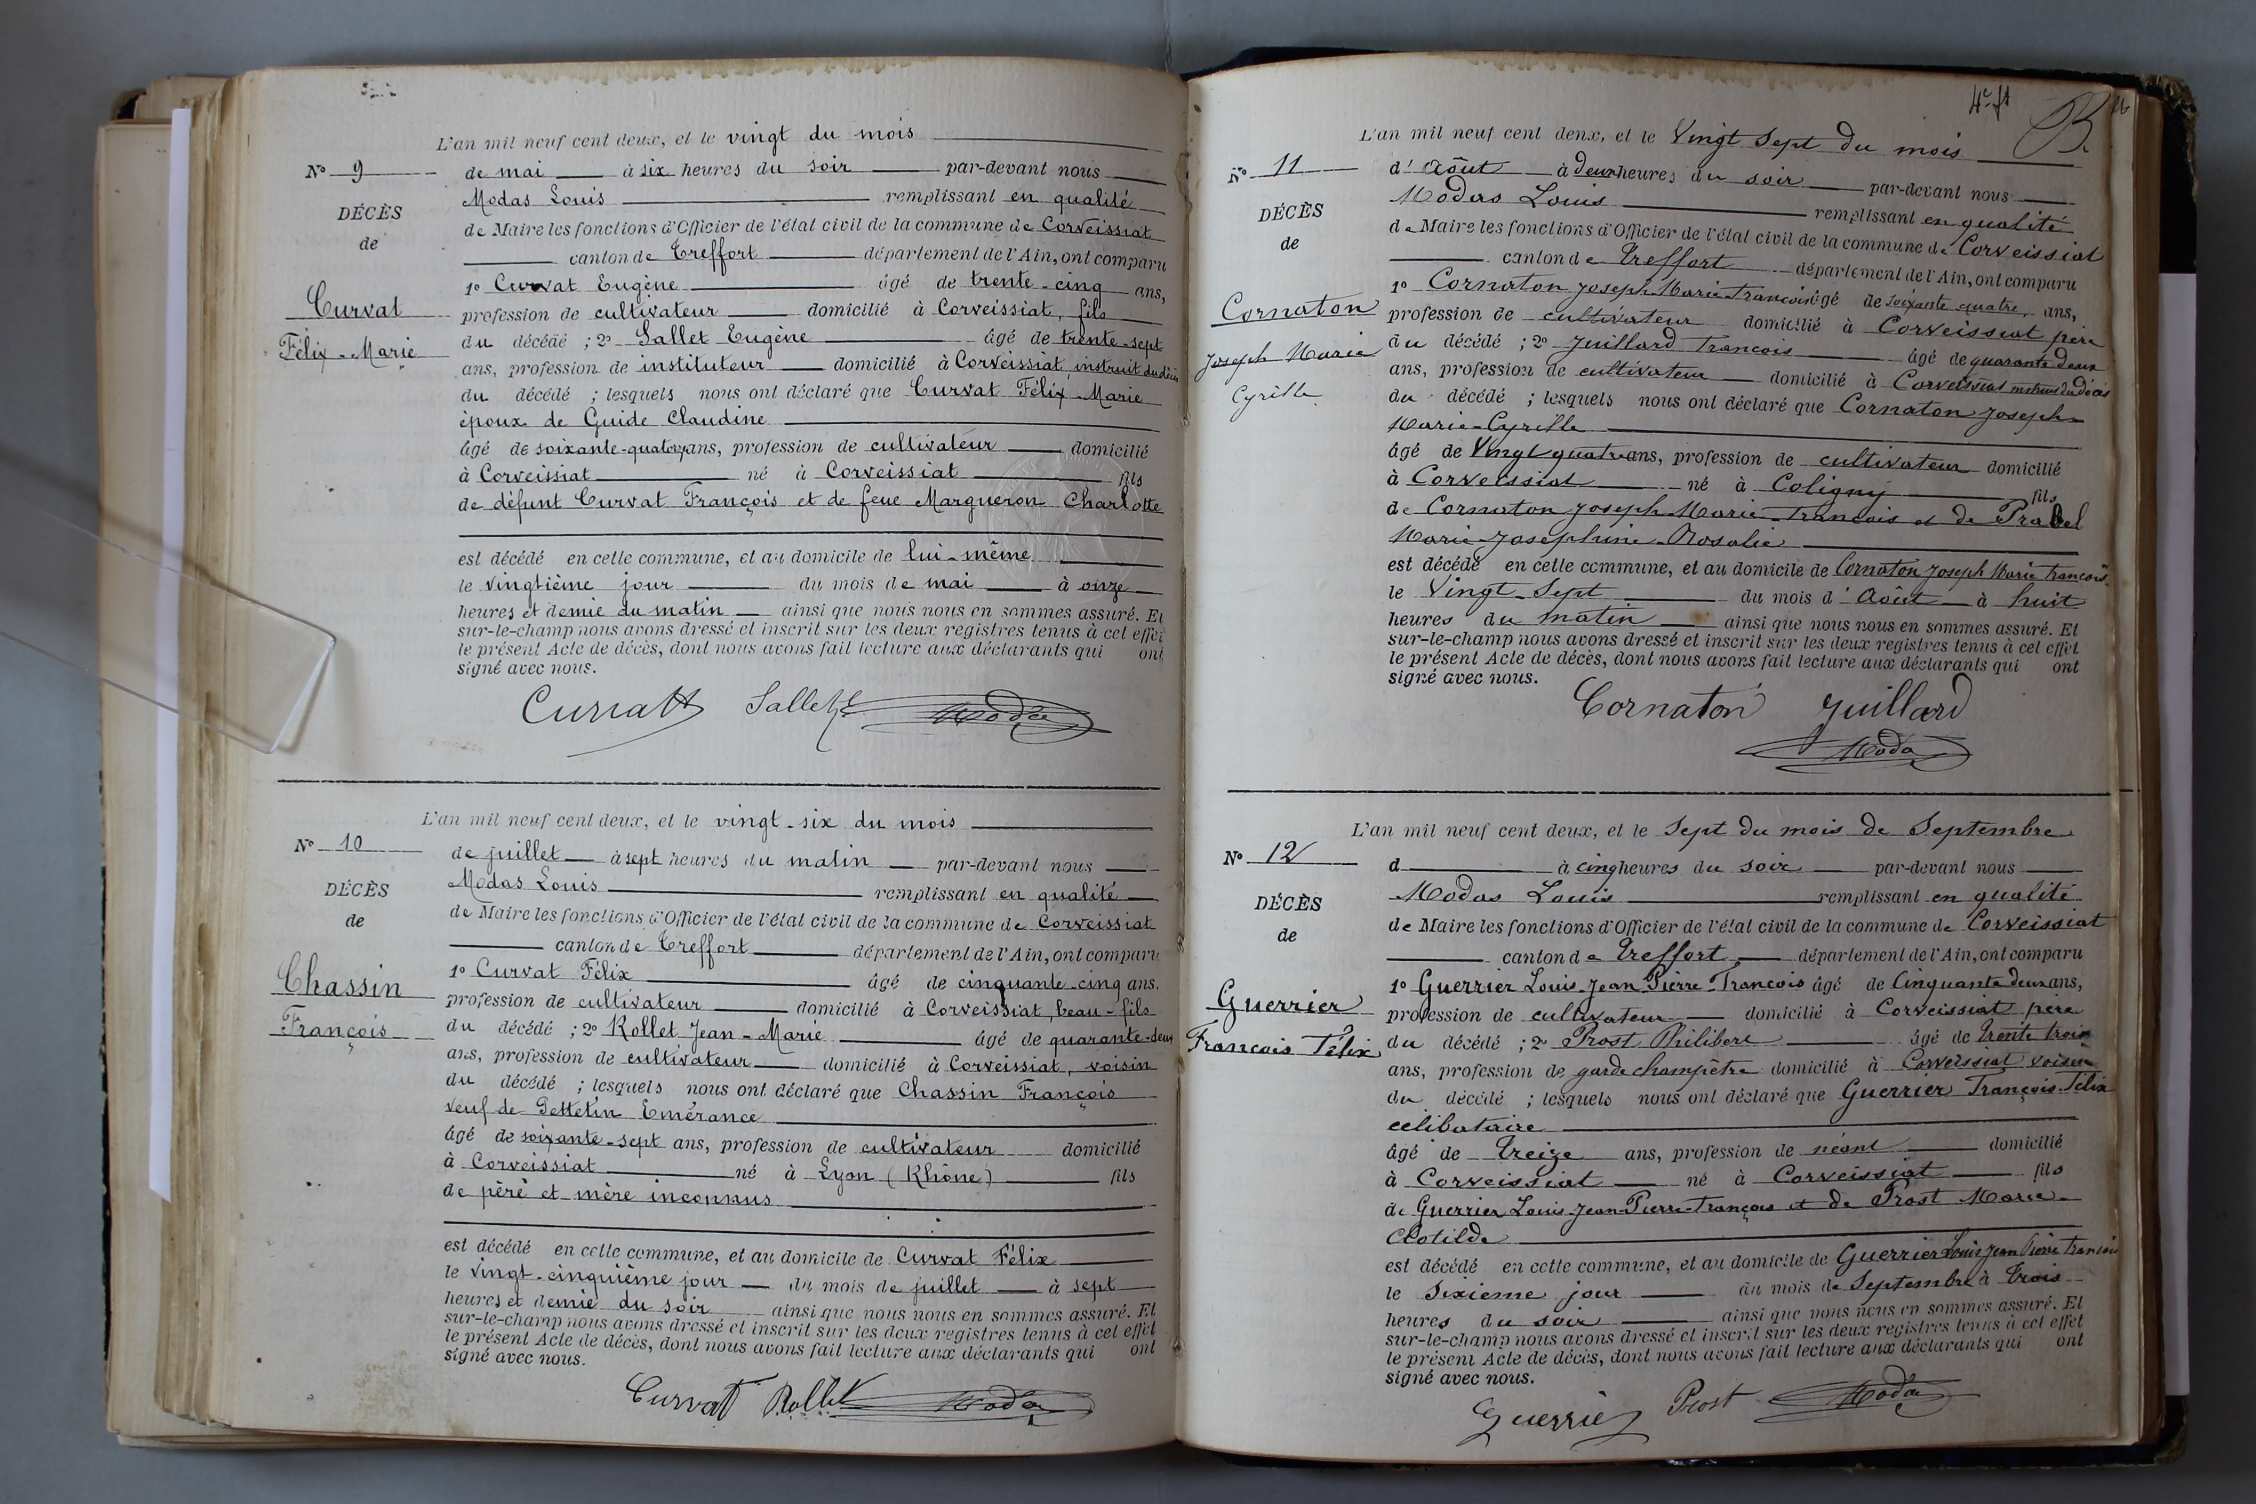 L'an mil neuf cent deux, et le vingt du mois
No 9
de mai à six heures du soir par-devant nous
Modas Louis remplissant en qualité
DÉCÈS
de Maire les fonctions d'Officier de l'état civil de la commune de Corveissiat
de
canton de Treffort département de l'Ain, ont comparu
1o Curvat Eugène âgé de trente-cinq ans,
Curvat
profession de cultivateur domicilié à Corveissiat, fils
Félix-Marie
du décédé ; 2o Sallet Eugène âgé de trente-sept
ans, profession de instituteur domicilié à Corveissiat, instruit du décès
du décédé ; lesquels nous ont déclaré que Curvat Félix-Marie
époux de Guide Claudine
âgé de ans, profession de cultivateur domicilié
à Corveissiat né à Corveissiat fils
de défunt Curvat François et de feue Margueron Charlotte
est décédé en cette commune, et au domicile de lui-même
le vingtième jour du mois de mai à onze
heures et demie du matin ainsi que nous nous en sommes assuré. Et
sur-le-champ nous avons dressé et inscrit sur les deux registres tenus à cet effet
le présent Acte de décès, dont nous avons fait lecture aux déclarants qui ont
signé avec nous.
Curvat Sallet Modas
L'an mil neuf cent deux, et le vingt-six du mois
No 10
de juillet à sept heures du matin par-devant nous
Modas Louis remplissant en qualité
DÉCÈS
de Maire les fonctions d'Officier de l'état civil de la commune de Corveissiat
de
canton de Treffort département de l'Ain, ont comparu
1o Curvat Félix âgé de cinquante-cinq ans,
Chassin
profession de cultivateur domicilié à Corveissiat, beau-fils
François
du décédé ; 2o Rollet Jean-Marie âgé de quarante-deux
ans, profession de cultivateur domicilié à Corveissiat, voisin
du décédé ; lesquels nous ont déclaré que Chassin François
veuf de Pettetin Emérance
âgé de soixante-sept ans, profession de cultivateur domicilié
à Corveissiat né à Lyon (Rhône) fils
de père et mère inconnus
est décédé en cette commune, et au domicile de Curvat Félix
le vingt-cinquième jour du mois de juillet à sept
heures et demie du soir ainsi que nous nous en sommes assuré. Et
sur-le-champ nous avons dressé et inscrit sur les deux registres tenus à cet effet
le présent Acte de décès, dont nous avons fait lecture aux déclarants qui ont
signé avec nous.
Curvat Rollet Modas
L'an mil neuf cent deux, et le Vingt Sept du mois
No 11
d'Août à deux heures du soir par-devant nous
Modas Louis remplissant en qualité
DÉCÈS
de Maire les fonctions d'Officier de l'état civil de la commune de Corveissiat
de
canton de Treffort département de l'Ain, ont comparu
1o Cornaton Joseph Marie François âgé de soixante quatre ans,
Cornaton
profession de cultivateur domicilié à Corveissiat père
Joseph Marie
du décédé ; 2o Juillard François âgé de quarante deux
ans, profession de cultivateur domicilié à Corveissiat instruit du décès
Cyrille
du décédé ; lesquels nous ont déclaré que Cornaton Joseph
Marie-Cyrille
âgé de Vingt quatre ans, profession de cultivateur domicilié
à Corveissiat né à Coligny fils
de Cornaton Joseph-Marie-François et de Prabel
Marie-Joséphine-Rosalie
est décédé en cette commune, et au domicile de Cornaton Joseph Marie François
le Vingt-Sept du mois d'Août à huit
heures du matin ainsi que nous nous en sommes assuré. Et
sur-le-champ nous avons dressé et inscrit sur les deux registres tenus à cet effet
le présent Acte de décès, dont nous avons fait lecture aux déclarants qui ont
signé avec nous.
Cornaton Juillard
Modas
L'an mil neuf cent deux, et le Sept du mois de Septembre
No 12
d à cinq heures du soir par-devant nous
Modas Louis remplissant en qualité
DÉCÈS
de Maire les fonctions d'Officier de l'état civil de la commune de Corveissiat
de
canton de Treffort département de l'Ain, ont comparu
1o Guerrier Louis-Jean-Pierre-François âgé de Cinquante deux ans,
Guerrier
profession de cultivateur domicilié à Corveissiat père
François Félix
du décédé ; 2o Prost Philibert âgé de trente trois
ans, profession de garde champêtre domicilié à Corveissiat voisin
du décédé ; lesquels nous ont déclaré que Guerrier François-Félix
célibataire
âgé de Treize ans, profession de néant domicilié
à Corveissiat né à Corveissiat fils
de Guerrier Louis-Jean-Pierre-François et de Prost Marie-
Clotilde
est décédé en cette commune, et au domicile de Guerrier Louis Jean Pierre François
le Sixième jour du mois de Septembre à trois
heures du soir ainsi que nous nous en sommes assuré. Et
sur-le-champ nous avons dressé et inscrit sur les deux registres tenus à cet effet
le présent Acte de décès, dont nous avons fait lecture aux déclarants qui ont
signé avec nous.
Guerrier Prost Modas